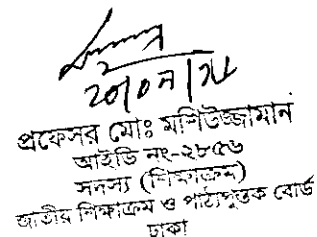 ২০/০৭/২৮
প্রফেসর মোঃ মশিউজ্জামান
আইডি নং-২৮৫৬
সদস্য (শিক্ষাক্রম)
জাতীয় শিক্ষাক্রম ও পাঠ্যপুস্তক বোর্ড
ঢাকা